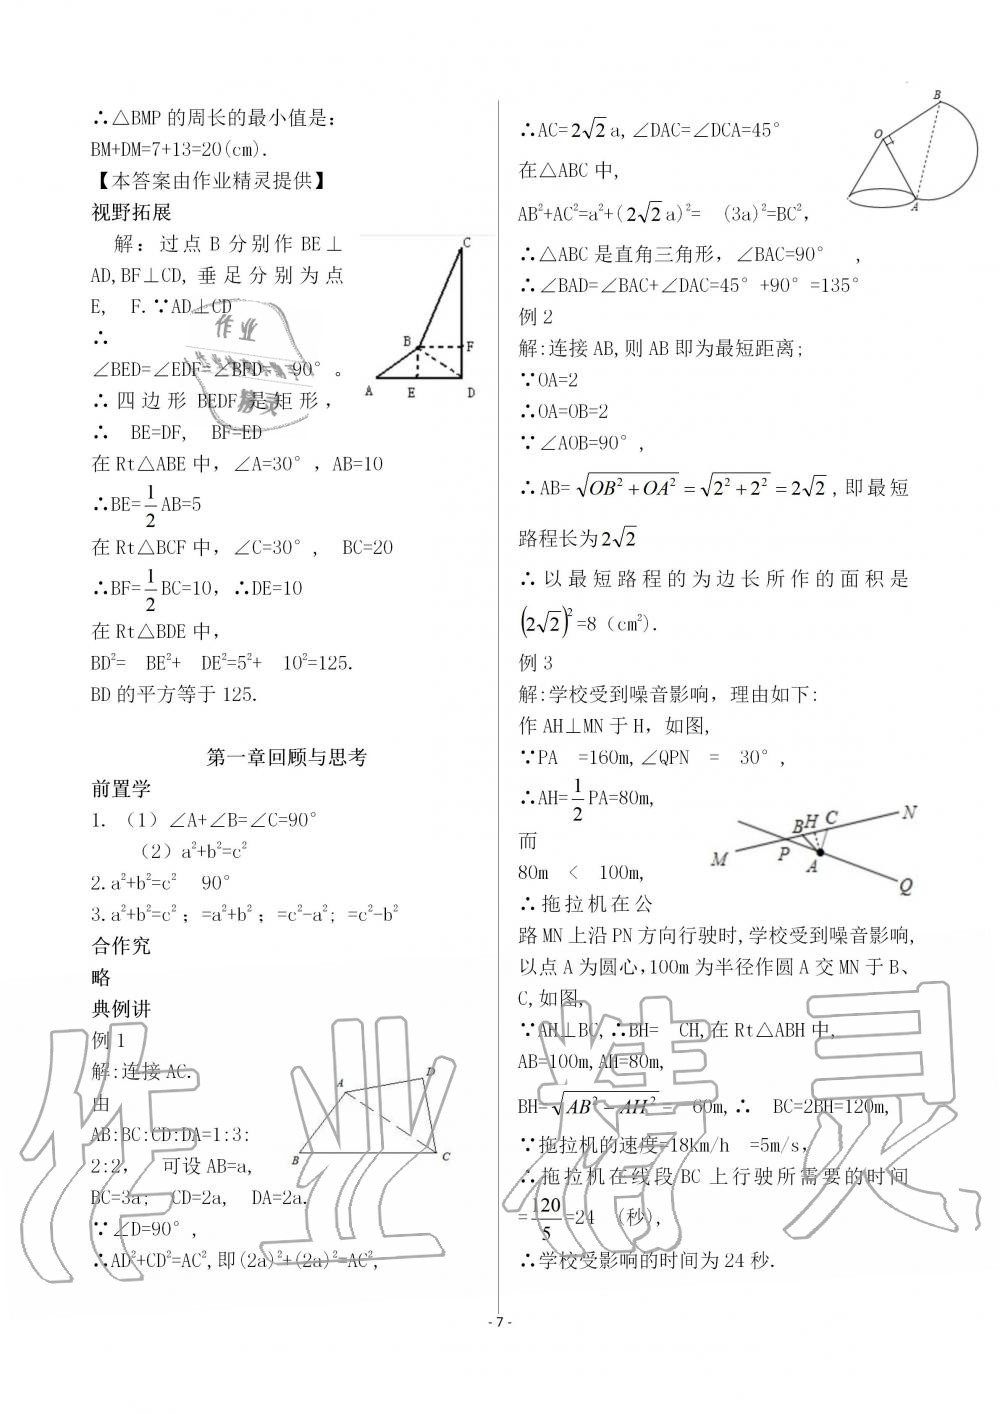 ∴△BMP 的周长的最小值是:
BM+DM=7+13=20(cm).
【本答案由作业精灵提供】
视野拓展
解: 过点 B 分别作 BE⊥
AD,BF⊥CD, 垂足分别为点
E, F.∵AD⊥CD
∴
∠BED=∠EDF=∠BFD= 90°。
∴四边形 BEDF 是矩形,
∴ BE=DF, BF=ED
在 Rt△ABE 中, ∠A=30°, AB=10
∴BE=1/2AB=5
在 Rt△BCF 中, ∠C=30°, BC=20
∴BF=1/2BC=10, ∴DE=10
在 Rt△BDE 中,
BD²= BE²+ DE²=5²+ 10²=125.
BD 的平方等于 125.
C
B
F
A
E
D
第一章回顾与思考
前置学
1. (1) ∠A+∠B=∠C=90°
(2) a²+b²=c²
2.a²+b²=c² 90°
3.a²+b²=c²; =a²+b²; =c²-a²; =c²-b²
合作究
略
典例讲
例 1
解:连接 AC.
由
AB:BC:CD:DA=1:3:
2:2, 可设 AB=a,
BC=3a; CD=2a, DA=2a.
∵∠D=90°,
∴AD²+CD²=AC²,即(2a)²+(2a)²=AC²,
A
D
B
C
∴AC=2√2a,∠DAC=∠DCA=45°
在△ABC 中,
AB²+AC²=a²+(2√2a)²= (3a)²=BC²,
∴△ABC 是直角三角形, ∠BAC=90° ,
∴∠BAD=∠BAC+∠DAC=45°+90°=135°
B
O
A
例 2
解:连接 AB,则 AB 即为最短距离;
∵OA=2
∴OA=OB=2
∵∠AOB=90°,
∴AB=√(OB²+OA²)=√(2²+2²)=2√2,即最短
路程长为2√2
∴以最短路程的为边长所作的面积是
(2√2)²=8(cm²).
例 3
解:学校受到噪音影响, 理由如下:
作 AH⊥MN 于 H, 如图,
∵PA =160m,∠QPN = 30°,
∴AH=1/2PA=80m,
而
80m < 100m,
∴拖拉机在公
路 MN 上沿 PN 方向行驶时,学校受到噪音影响,
以点 A 为圆心,100m 为半径作圆 A 交 MN 于 B、
C,如图,
∵AH⊥BC,∴BH= CH,在 Rt△ABH 中,
AB=100m,AH=80m,
BH=√(AB²-AH²)= 60m,∴ BC=2BH=120m,
∵拖拉机的速度=18km/h =5m/s,
∴拖拉机在线段 BC 上行驶所需要的时间
=120/5=24 (秒),
∴学校受影响的时间为 24 秒.
M
P
B
H
C
N
A
Q
作业精灵
- 7 -